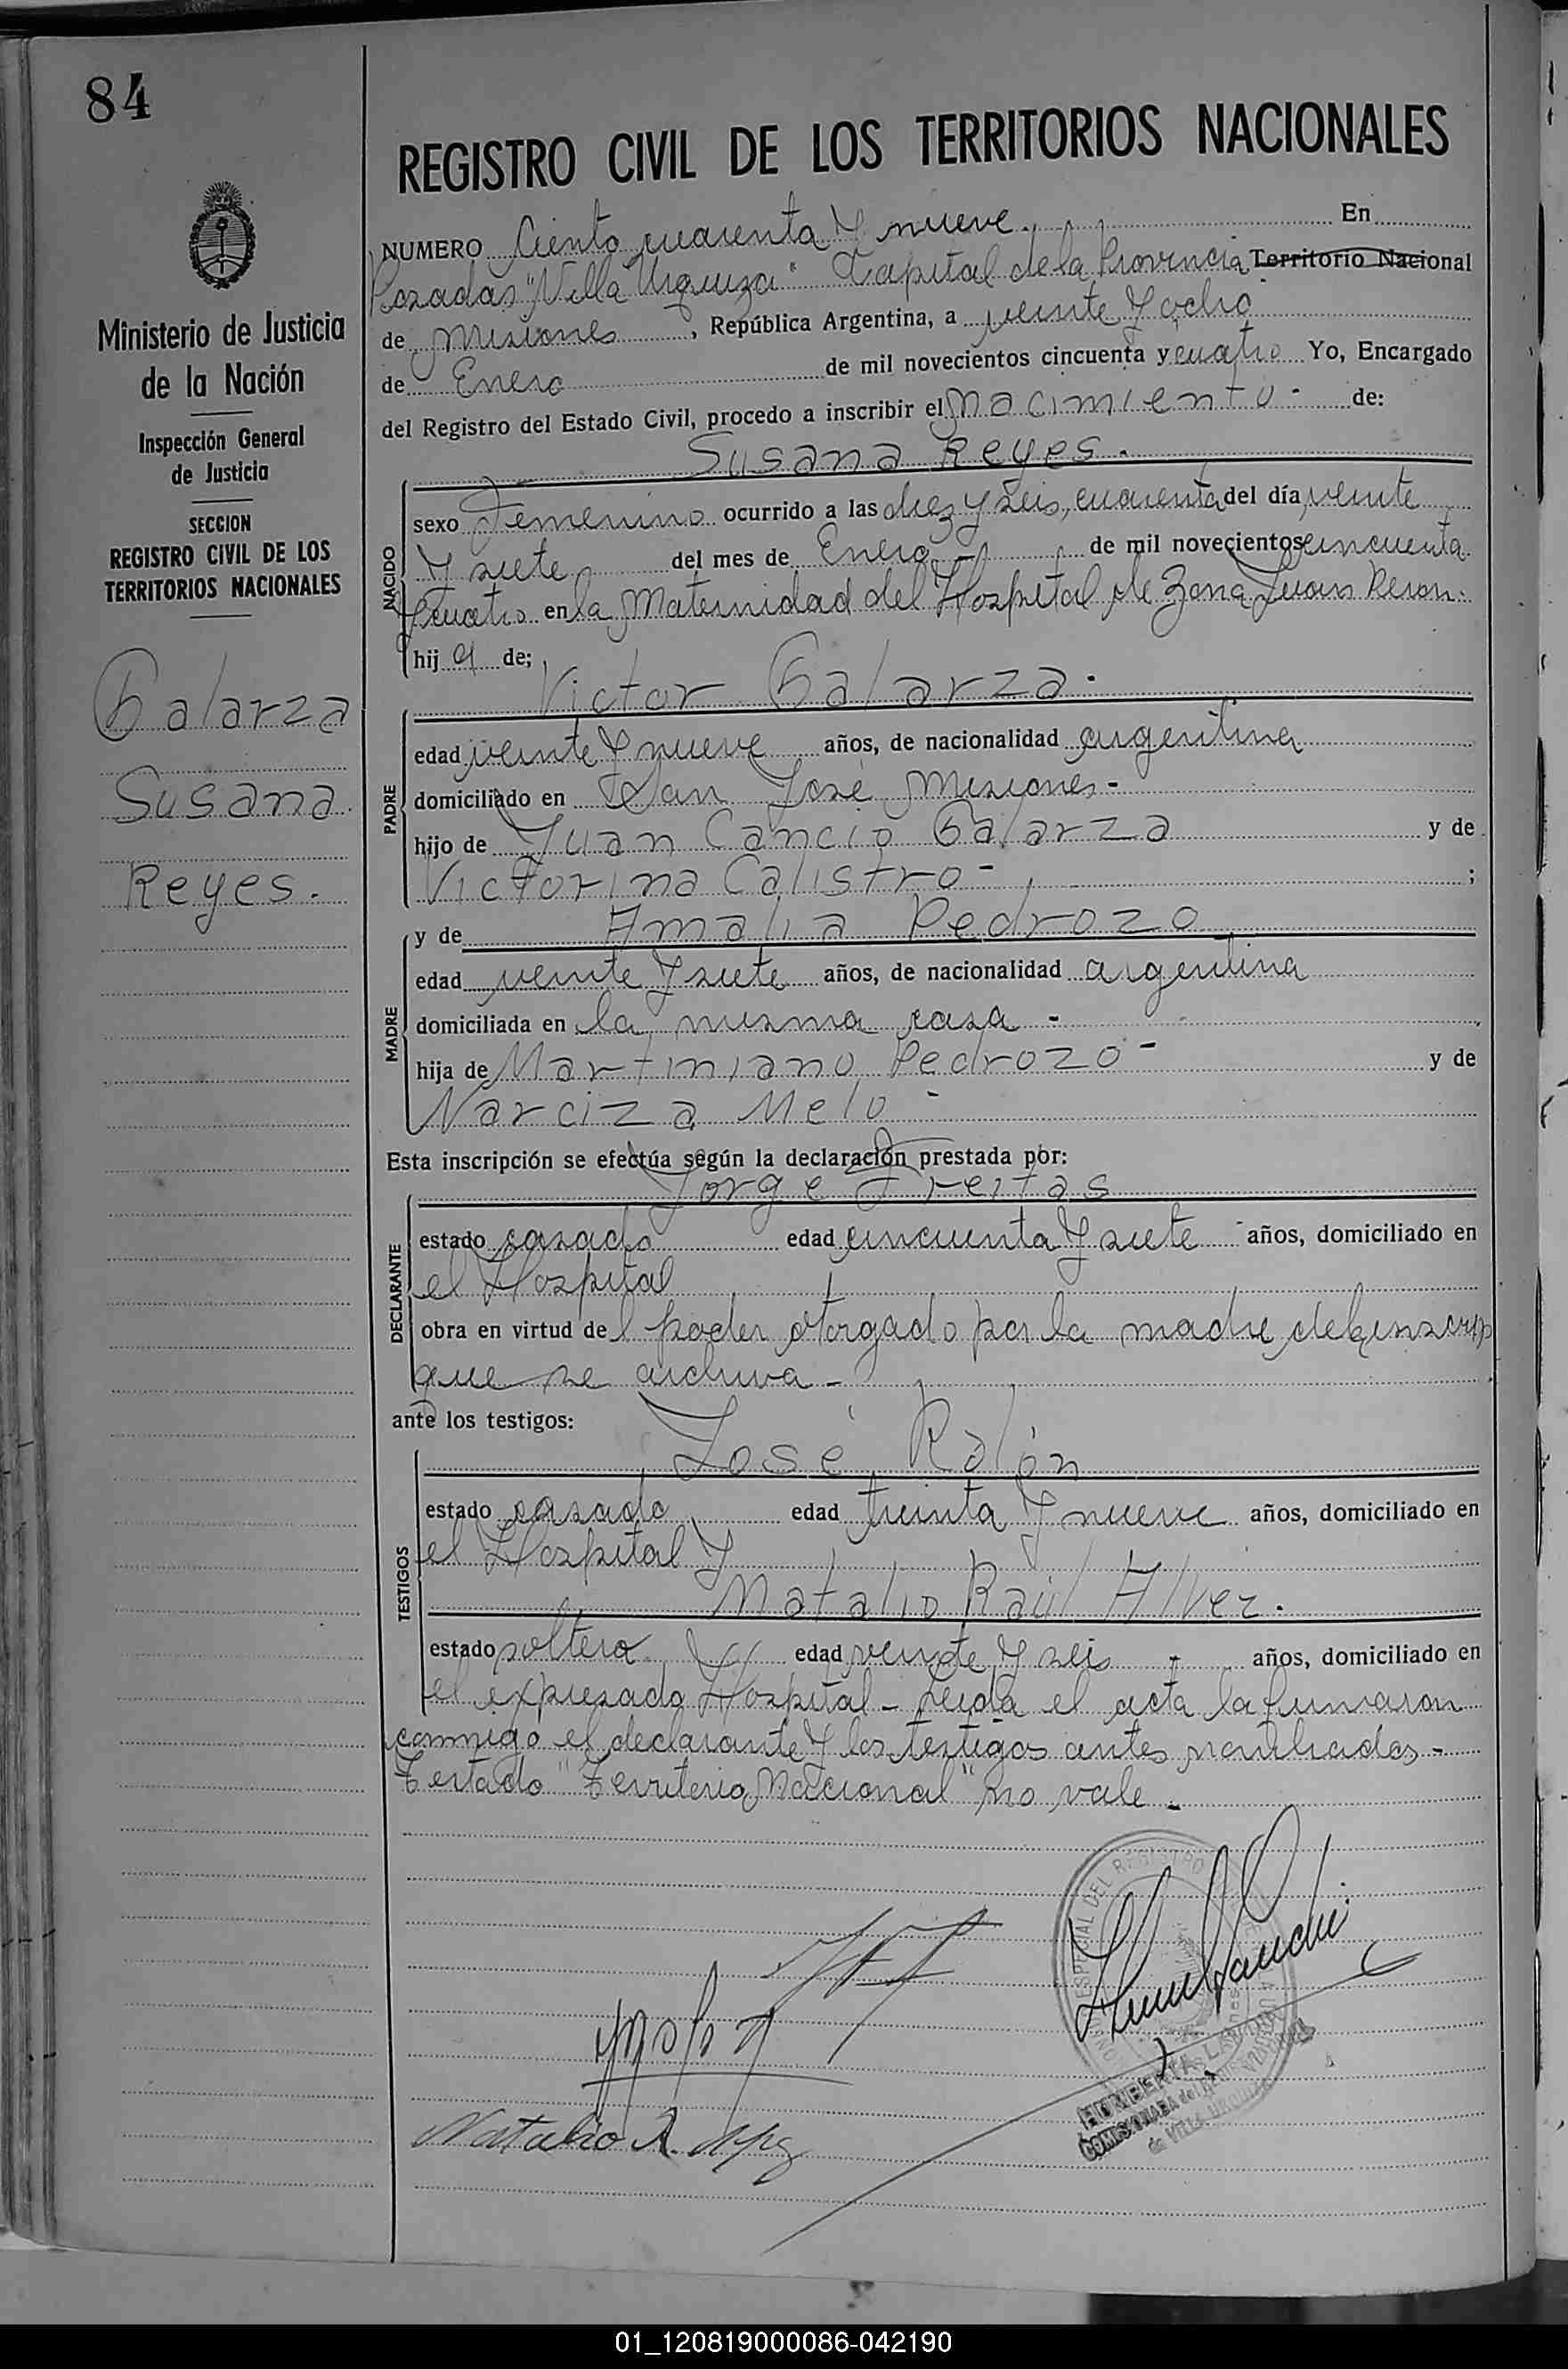 84
REGISTRO CIVIL DE LOS TERRITORIOS NACIONALES
Ministerio de Justicia
de la Nación
Inspección General
de Justicia
SECCION
REGISTRO CIVIL DE LOS
TERRITORIOS NACIONALES
Galarza
Susana
Reyes.
NUMERO Ciento cuarenta y nueve. En
Posadas "Villa Urquiza" Capital de la Provincia Territorio Nacional
de Misiones, República Argentina, a veinte y ocho
de Enero de mil novecientos cincuenta y cuatro Yo, Encargado
del Registro del Estado Civil, procedo a inscribir el nacimiento - de:
Susana Reyes.
NACIDO
sexo Femenino ocurrido a las diez y seis, cuarenta del día veinte
y siete del mes de Enero - de mil novecientos cincuenta
y cuatro en la Maternidad del Hospital de Zona Juan Peron.
hij a de;
Victor Galarza.
PADRE
edad veinte y nueve años, de nacionalidad argentina
domiciliado en San José Misiones -
hijo de Juan Cancio Galarza y de
Victorina Calistro - ;
y de Amalia Pedrozo
MADRE
edad veinte y siete años, de nacionalidad argentina
domiciliada en la misma casa -
hija de Martiniano Pedrozo - y de
Narciza Melo -
Esta inscripción se efectúa según la declaración prestada por:
Jorge Freitas
DECLARANTE
estado casado edad cincuenta y siete años, domiciliado en
el Hospital
obra en virtud del poder otorgado por la madre de la inscrip
que se archiva -
ante los testigos:
José Rolón
TESTIGOS
estado casado edad treinta y nueve años, domiciliado en
el Hospital y
Natalio Raúl Alvez.
estado soltero edad veinte y seis - años, domiciliado en
el expresado Hospital - Leida el acta la firmaron
conmigo el declarante y los testigos antes nombrados -
Testado "Territorio Nacional" no vale -
Natalio R.
DEL REGISTRO
COMISIONADA
de VILLA URQUIZA
01_120819000086-042190